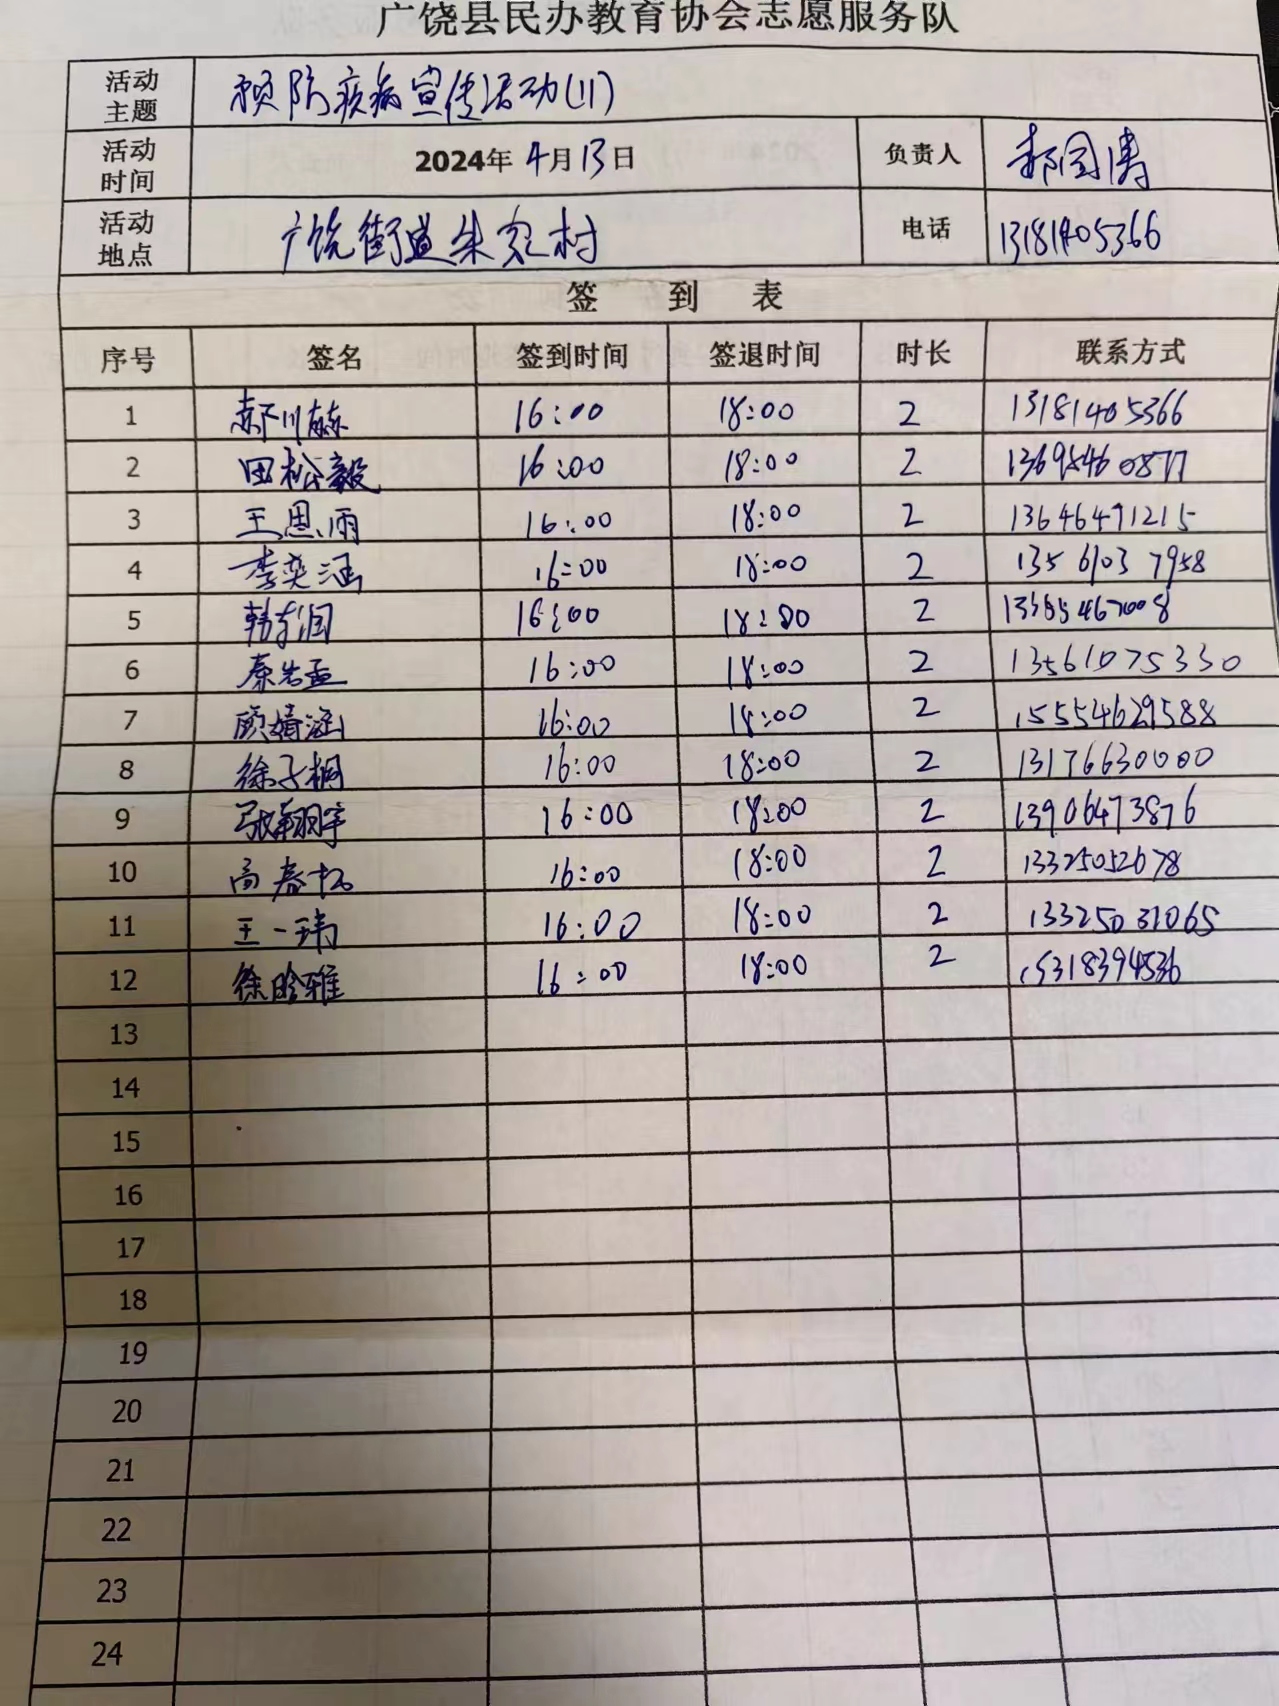 广饶县民办教育协会志愿服务队
活动主题 预防疾病宣传活动(11)
活动时间 2024年 4月 13日 负责人 郝国涛
活动地点 广饶街道朱家村 电话 13181405366
签 到 表
序号 签名 签到时间 签退时间 时长 联系方式
1 16:00 18:00 2 13181405366
2 田松毅 16:00 18:00 2 13695460877
3 王思雨 16:00 18:00 2 13646491215
4 李奕涵 16:00 18:00 2 13561037958
5 韩东润 16:00 18:00 2
6 秦浩孟 16:00 18:00 2 13561075330
7 顾婧涵 16:00 18:00 2 15554629588
8 徐子桐 16:00 18:00 2 13176630000
9 张翔宇 16:00 18:00 2 13906473876
10 高春 16:00 18:00 2 13325052678
11 王一玮 16:00 18:00 2 13325031065
12 徐晗雅 16:00 18:00 2 15318394536
13
14
15
16
17
18
19
20
21
22
23
24